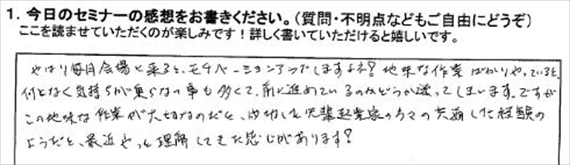 1. 今日のセミナーの感想をお書きください。(質問・不明点などもご自由にどうぞ)
ここを読ませていただくのが楽しみです！詳しく書いていただけると嬉しいです。
やはり毎月会場に来ると、モチベーションアップしますよね？地味な作業ばかりやっていると、
何となく気持ちが乗らない事も多くて、前に進めているのかどうか迷ってしまいます。ですが
この地味な作業が大切なのだと、成功した先輩起業家の方々の共通した経験の
ようだと、最近やっと理解してきた感じがあります？